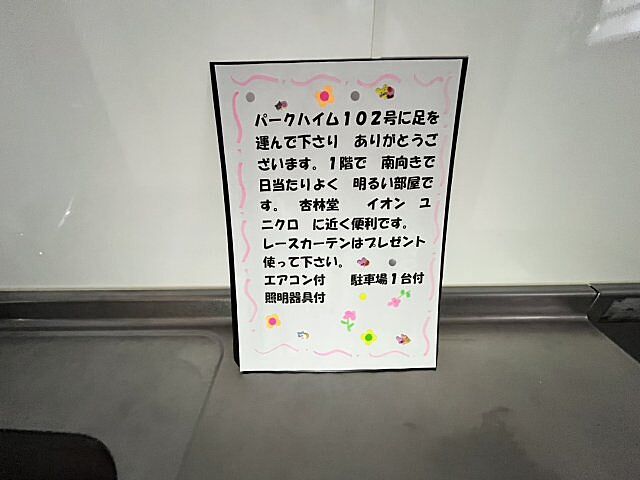 パークハイム102号に足を
運んで下さり　ありがとうご
ざいます。1階で　南向きで
日当たりよく　明るい部屋で
す。　杏林堂　　イオン　ユ
ニクロ　に近く便利です。
レースカーテンはプレゼント
使って下さい。
エアコン付　　駐車場1台付
照明器具付